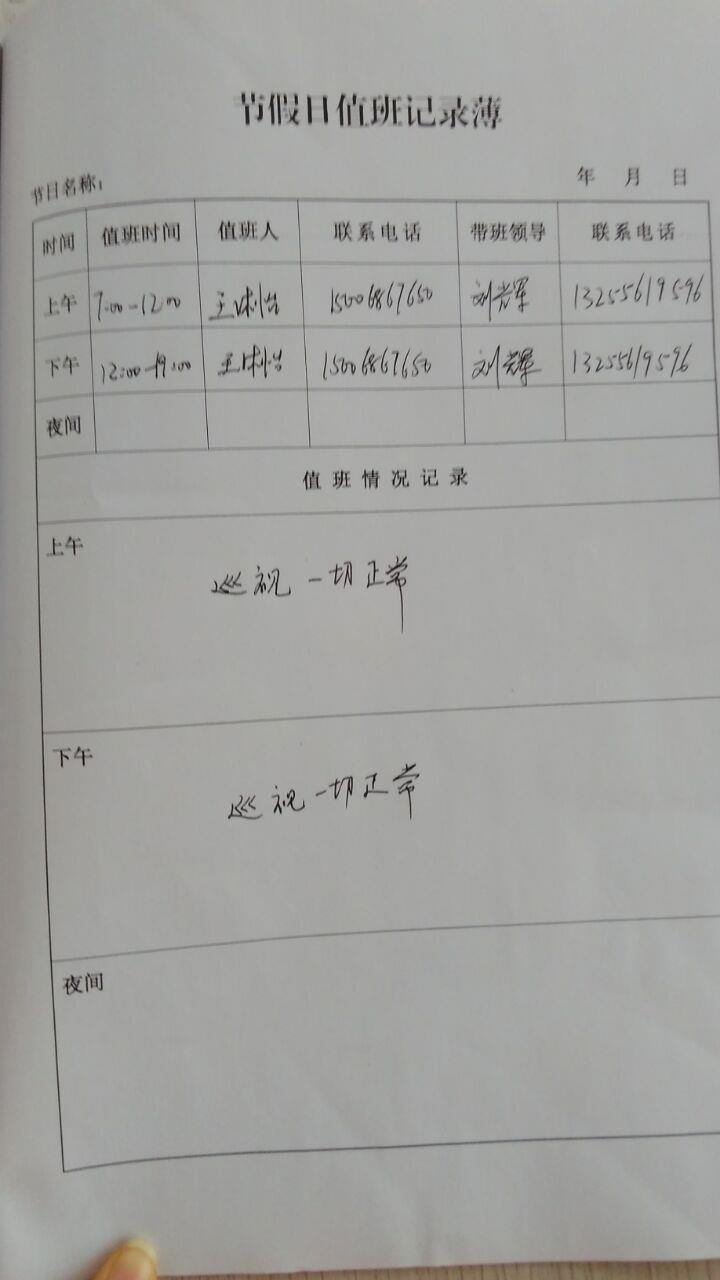 节假日值班记录薄
节日名称： 年 月 日
时间 值班时间 值班人 联系电话 带班领导 联系电话
上午 7:00-12:00 王 怡 15006867650 刘光辉 13255619596
下午 12:00-19:00 王 怡 15006867650 刘光辉 13255619596
夜间
值班情况记录
上午
巡视一切正常
下午
巡视一切正常
夜间